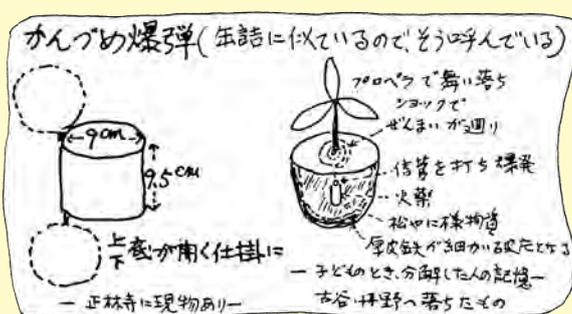 かんづめ爆弾(缶詰に似ているので、そう呼んでいる)
9cm
9.5cm
上下底が開く仕掛に
― 正林寺に現物あり―
プロペラで舞い落ち
ショックで
ぜんまいが廻り
信管を打ち爆発
火薬
松やに様物質
厚皮鉄が細かい破片となる
― 子どものとき、分解した人の記憶―
古谷・拝野へ落ちたもの